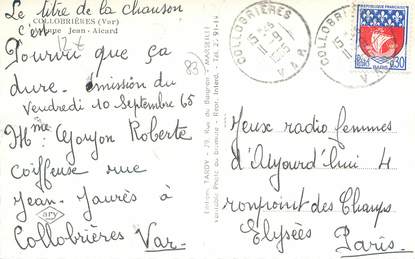 Le titre de la chanson
COLLOBRIÈRES (Var)
c'en
Groupe Jean-Aicard
12€
Pourvu que ça
dure. émission du
Vendredi 10 Septembre 65
Mme Goujon Roberte
Coiffeuse rue
Jean-Jaurès à
Collobrières Var.
83
ary
Editions TARDY - 29, Rue du Baignoir - MARSEILLE
véritable Photo au bromure - Repr. Interd. - Tél. 20-91-14
COLLOBRIÈRES
VAR
COLLOBRIÈRES
VAR
REPUBLIQUE FRANCAISE
POSTES
0,30
PARIS
Jeux radio femmes
d'Aujourd'hui 4
ronpoint des Champs
Elysées
Paris.